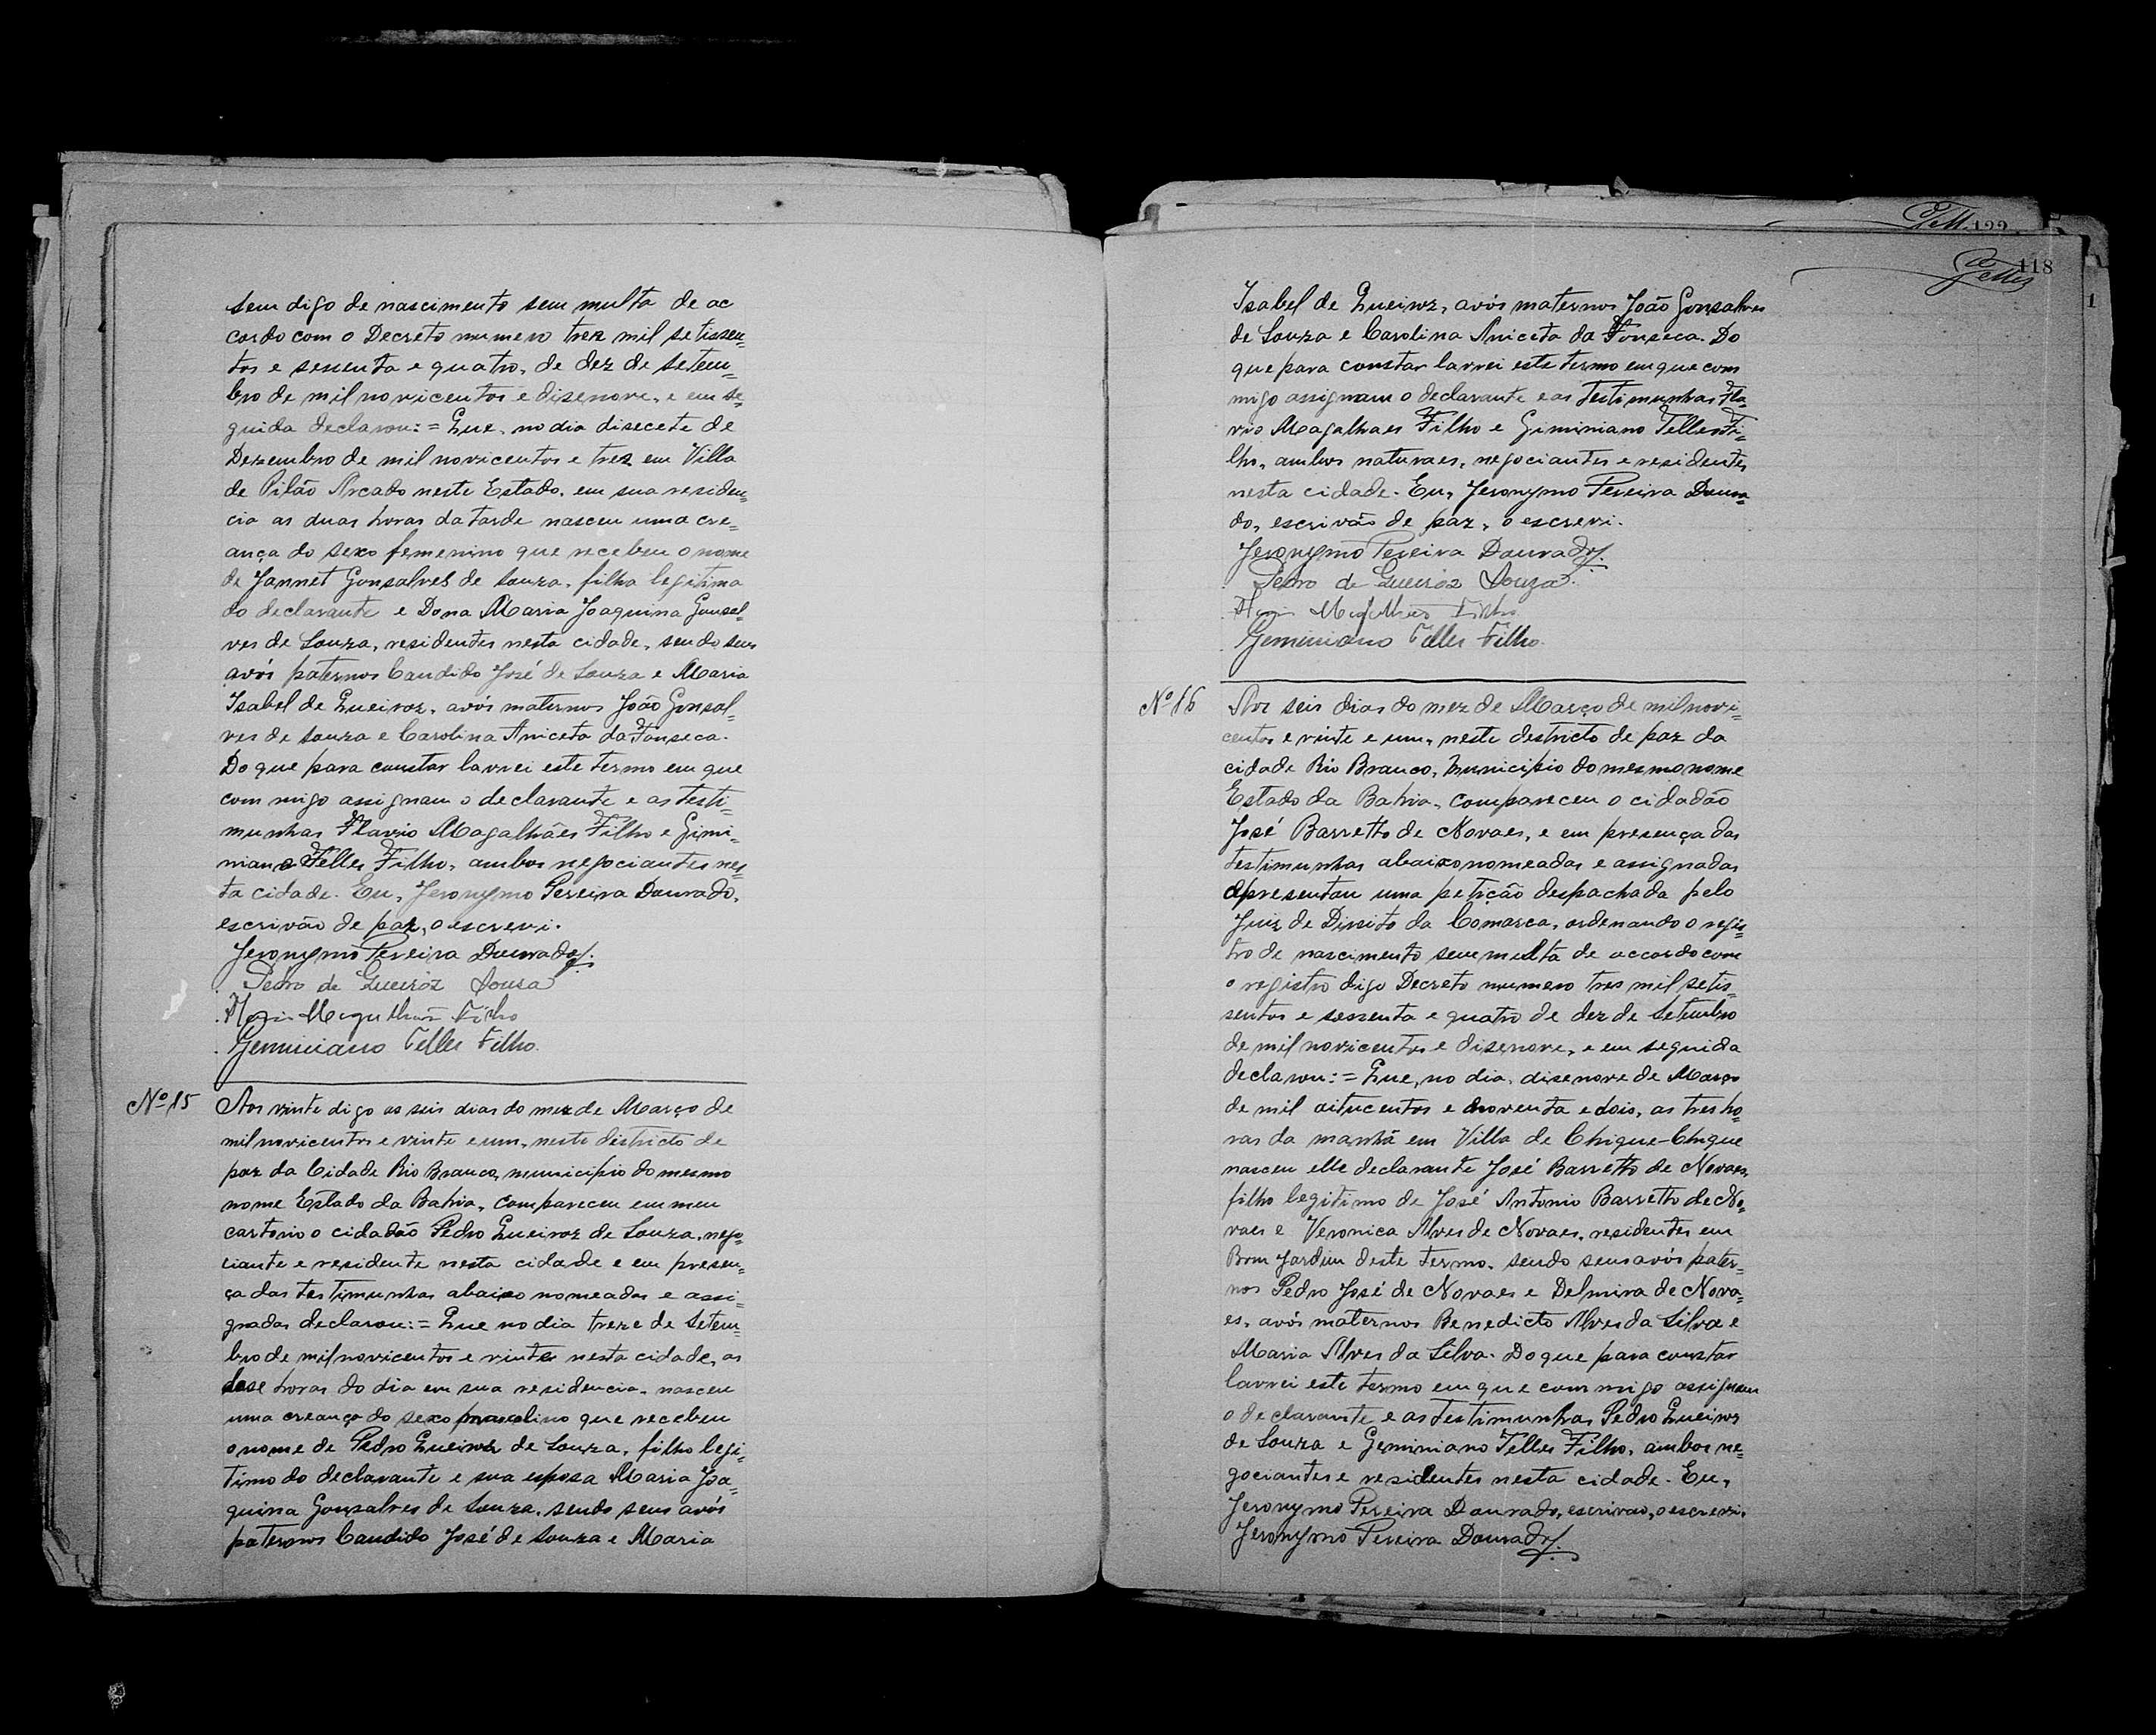 sem digo de nascimento sem multa de ac
cordo com o Decreto numero trez mil setissen=
tos e sessenta e quatro, de dez de setem=
bro de mil novicentos e disenove, e em se=
guida declarou:= Que, no dia disecete de
Dezembro de mil novicentos e trez em Villa
de Pilão Arcado neste Estado, em sua residen=
cia as duas horas da tarde nasceu uma cre=
ança do sexo femenino que recebeu o nome
de Jannet Gonsalves de Souza, filha legitima
do declarante e Dona Maria Joaquina Gonsal=
ves de Souza, residentes nesta cidade, sendo seus
avós paternos Candido José de Souza e Maria
Isabel de Queiroz, avós maternos João Gonsal=
ves de Souza e Carolina Aniceta da Fonseca.
Do que para constar lavrei este termo em que
com migo assignam o declarante e as testi=
munhas Flavio Magalhães Filho e Gimi=
niano Telles Filho, ambos negociantes nes=
ta cidade. Eu, Jeronymo Pereira Dourado,
escrivão de paz, o escrevi.
Jeronymo Pereira Dourado.
Pedro de Queiroz Souza
Magalhães Filho
Geminiano Telles Filho.
Nº 15
Aos vinte digo as seis dias do mez de Março de
mil novicentos e vinte e um, neste districto de
paz da Cidade Rio Branco, municipio do mesmo
nome Estado da Bahia, compareceu em meu
cartorio o cidadão Pedro Queiroz de Souza, nego=
ciante e residente nesta cidade e em presen=
ça das testimunhas abaixo nomeadas e assi=
gnadas declarou:= Que no dia treze de Setem=
bro de mil novicentos e vinte nesta cidade, as
dose horas do dia em sua residencia, nasceu
uma creança do sexo masculino que recebeu
o nome de Pedro Queiroz de Souza, filho legi=
timo do declarante e sua esposa Maria Joa=
quina Gonsalves de Souza, sendo seus avós
paternos Candido José de Souza e Maria
Tell. 122
118
Telles
1
Isabel de Queiroz, avós maternos João Gonsalves
de Souza e Carolina Aniceta da Fonseca. Do
que para constar lavrei este termo em que com
migo assignam o declarante e as testimunhas Fla=
vio Magalhaes Filho e Giminiano Telles Fi=
lho, ambos naturaes, negociantes e residentes
nesta cidade. Eu, Jeronymo Pereira Doura=
do, escrivão de paz, o escrevi.
Jeronymo Pereira Dourado.
Pedro de Queiroz Souza.
Magalhães Filho
Geminiano Telles Filho.
Nº 16
Aos seis dias do mez de Março de mil novi=
centos e vinte e um, neste destricto de paz da
cidade Rio Branco, Municipio do mesmo nome
Estado da Bahia, compareceu o cidadão
José Barretto de Novaes, e em presença das
testimunhas abaixo nomeadas e assignadas
apresentou uma petição despachada pelo
Juiz de Direito da Comarca, ordenando o regis=
tro de nascimento sem multa de accordo com
o registro digo Decreto numero tres mil setis=
sentos e sessenta e quatro de dez de Setembro
de mil novicentos e disenove, e em seguida
declarou:= Que, no dia disenove de Março
de mil oitucentos e noventa e dois, as tres ho=
ras da manhã em Villa de Chique-Chique
nasceu elle declarante José Barretto de Novaes,
filho legitimo de José Antonio Barretto de No=
vaes e Veronica Alves de Novaes, residentes em
Bom Jardim deste termo, sendo seus avós pater=
nos Pedro José de Novaes e Delmira de Nova=
es, avós maternos Benedicto Alves da Silva e
Maria Alves da Silva. Do que para constar
lavrei este termo em que commigo assignam
o declarante e as testimunhas Pedro Queiroz
de Souza e Geminiano Telles Filho, ambos ne=
gociantes e residentes nesta cidade. Eu,
Jeronymo Pereira Dourado, escrivao, o escrevi.
Jeronymo Pereira Dourado.